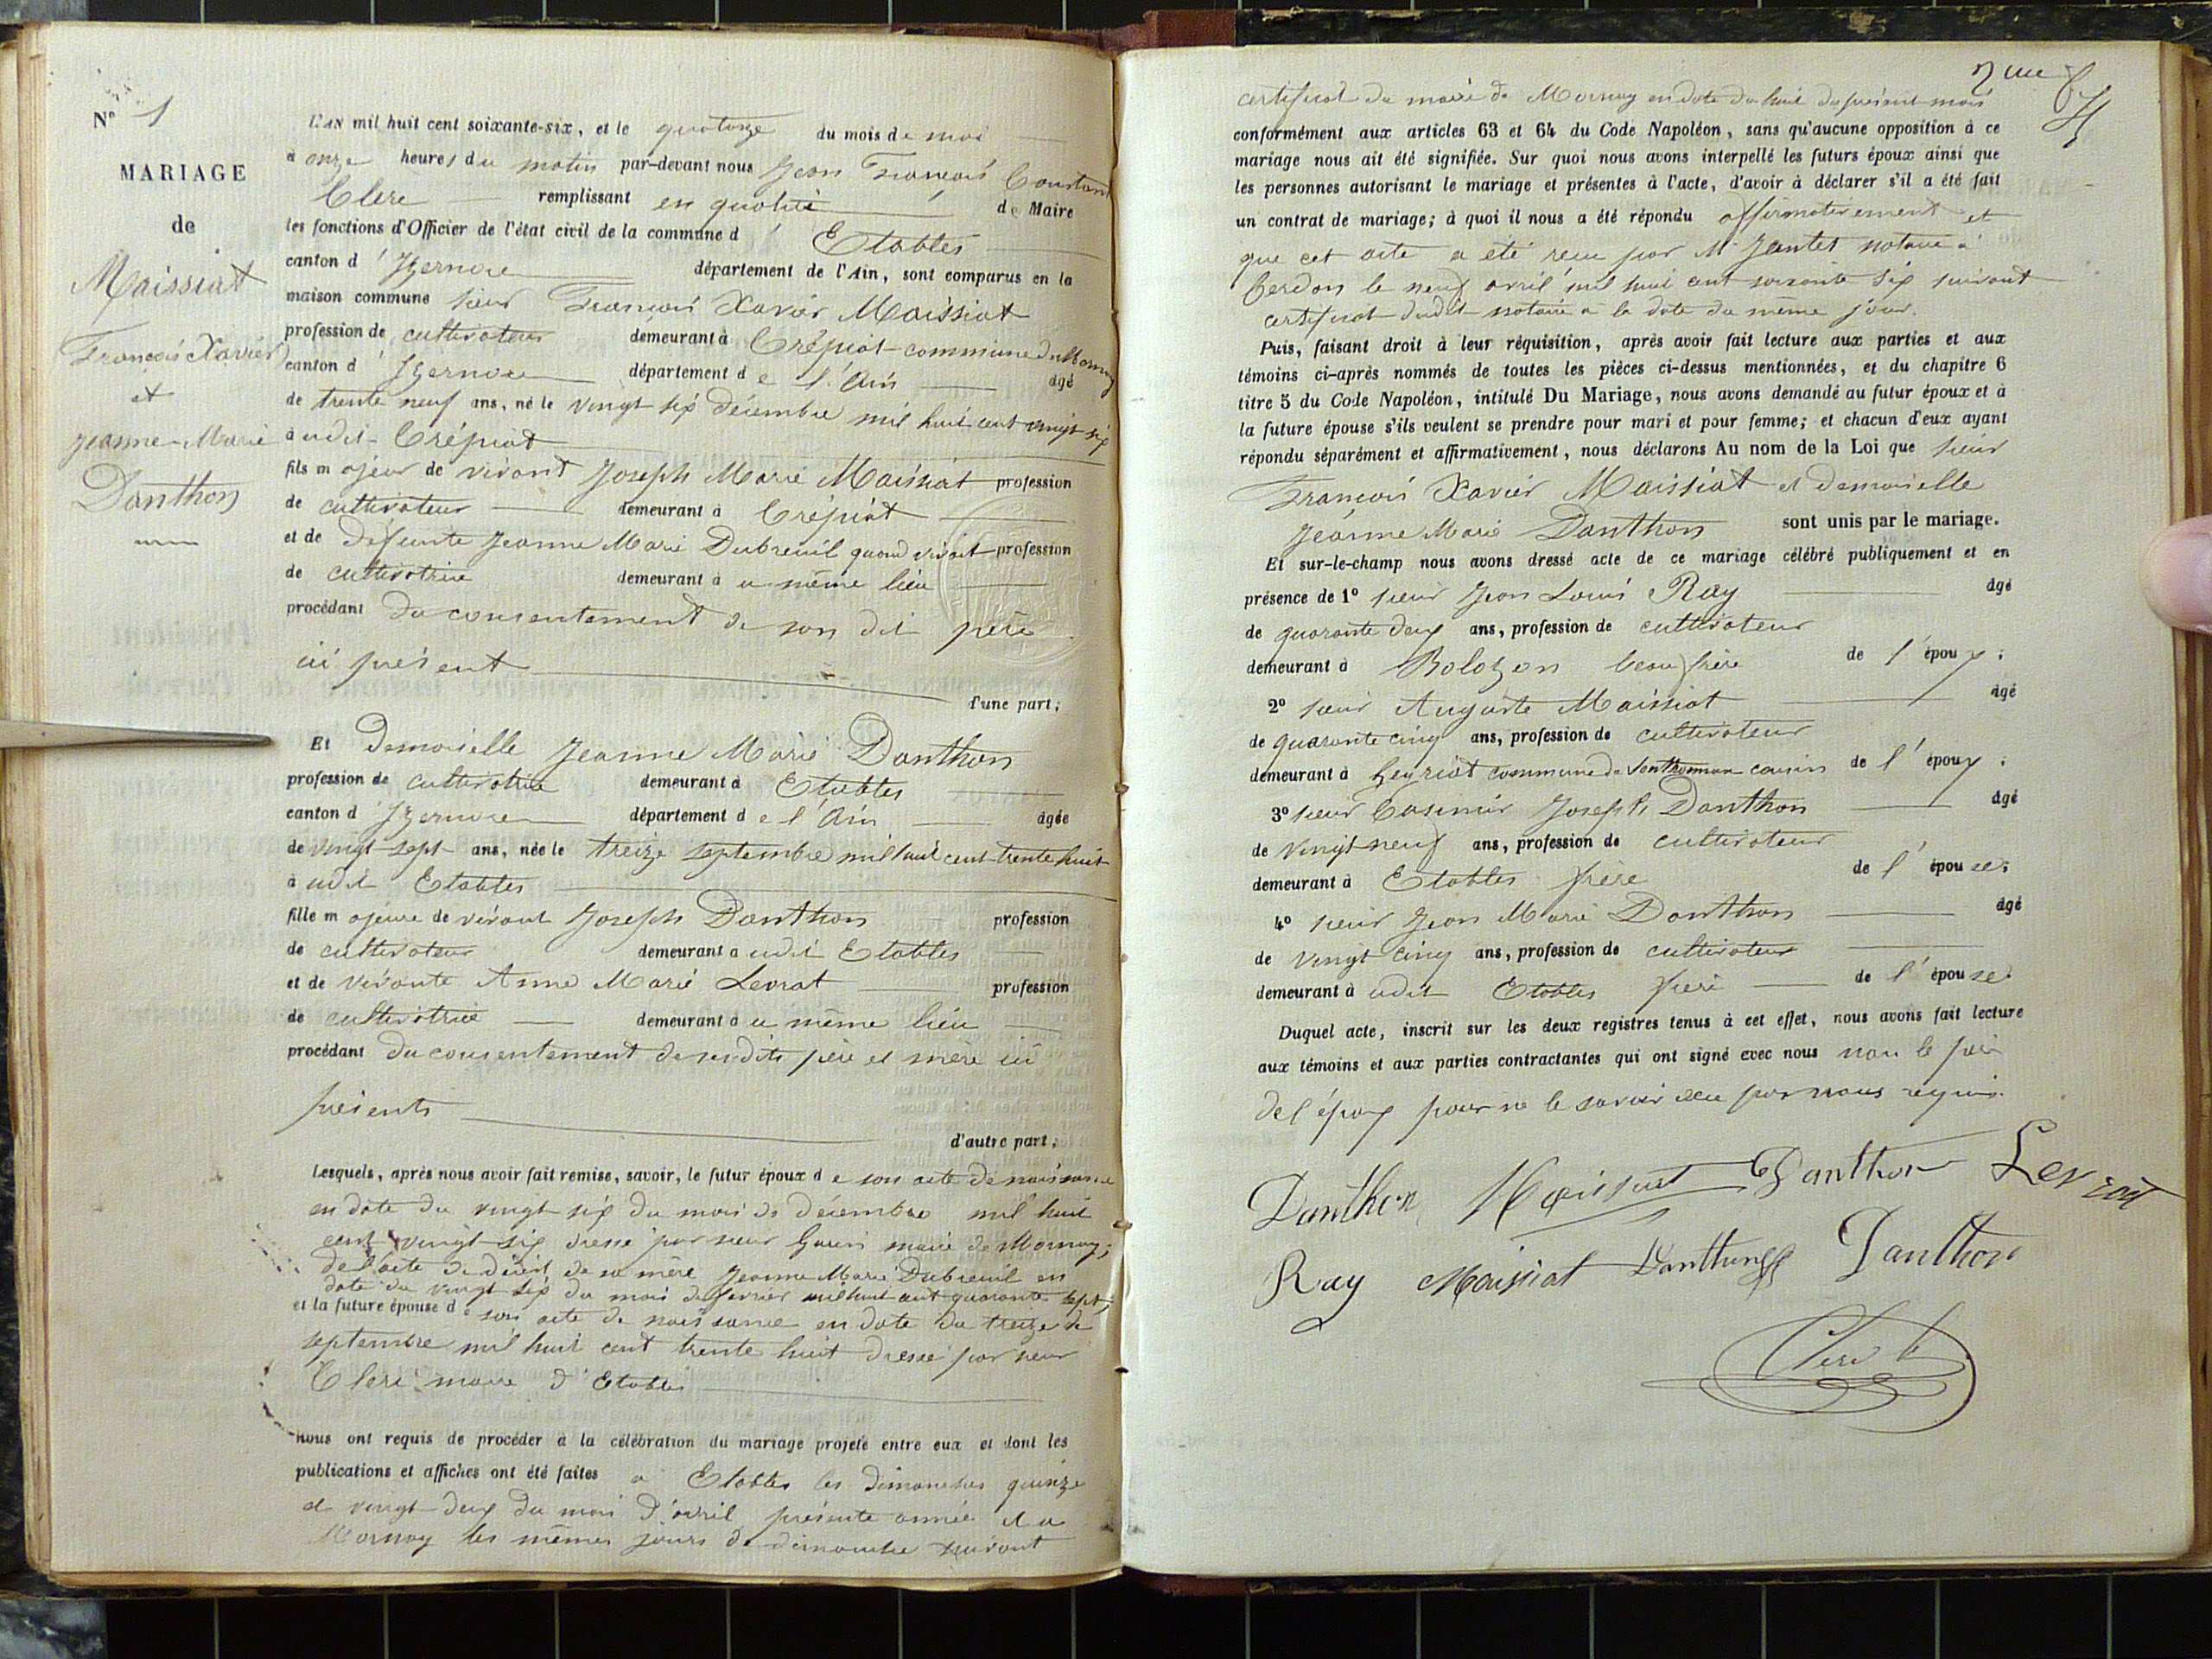 N° 1
MARIAGE
de
Maissiat
François Xavier
et
Jeanne-Marie
Danthon
L'AN mil huit cent soixante-six, et le quatorze du mois de mai
à onze heures du matin par-devant nous Jean François Constant
Clerc remplissant en qualité de Maire
les fonctions d'Officier de l'état civil de la commune d' Etables
canton d' Izernore département de l'Ain, sont comparus en la
maison commune sieur François Xavier Maissiat
profession de cultivateur demeurant à Crépiat commune de Mornay
canton d' Izernore département de l'Ain âgé
de trente neuf ans, né le vingt six décembre mil huit cent vingt six
audit Crépiat
fils majeur de vivant Joseph Marie Maissiat profession
de cultivateur demeurant à Crépiat
et de défunte Jeanne Marie Dubreuil quand vivait profession
de cultivatrice demeurant au même lieu
procédant du consentement de son dit père
ici présent
d'une part;
Et Demoiselle Jeanne Marie Danthon
profession de cultivatrice demeurant à Etables
canton d' Izernore département de l'Ain âgée
de vingt sept ans, née le treize septembre mil huit cent trente huit
audit Etables
fille majeure de vivant Joseph Danthon profession
de cultivateur demeurant audit Etables
et de vivante Anne Marie Levrat profession
de cultivatrice demeurant au même lieu
procédant du consentement de sesdits père et mère ici
présents
d'autre part;
Lesquels, après nous avoir fait remise, savoir, le futur époux de son acte de naissance
en date du vingt six du mois de décembre mil huit
cent vingt-six dressé par sieur maire de Mornay;
de l'acte de décès de sa mère Jeanne Marie Dubreuil en
date du vingt six du mois de février mil huit cent quarante sept;
et la future épouse de son acte de naissance en date du treize de
septembre mil huit cent trente huit dressé par sieur
Clerc maire d'Etables
nous ont requis de procéder à la célébration du mariage projeté entre eux et dont les
publications et affiches ont été faites à Etables les dimanches quinze
et vingt deux du mois d'avril présente année et à
Mornay les mêmes jours de dimanche suivant
2me
certificat du maire de Mornay en date du huit du présent mois
conformément aux articles 63 et 64 du Code Napoléon, sans qu'aucune opposition à ce
mariage nous ait été signifiée. Sur quoi nous avons interpellé les futurs époux ainsi que
les personnes autorisant le mariage et présentes à l'acte, d'avoir à déclarer s'il a été fait
un contrat de mariage; à quoi il nous a été répondu affirmativement et
que cet acte a été reçu par Me Jantet notaire à
Cerdon le neuf avril mil huit cent soixante six suivant
certificat dudit notaire à la date du même jour.
Puis, faisant droit à leur réquisition, après avoir fait lecture aux parties et aux
témoins ci-après nommés de toutes les pièces ci-dessus mentionnées, et du chapitre 6
titre 5 du Code Napoléon, intitulé Du Mariage, nous avons demandé au futur époux et à
la future épouse s'ils veulent se prendre pour mari et pour femme; et chacun d'eux ayant
répondu séparément et affirmativement, nous déclarons Au nom de la Loi que sieur
François Xavier Maissiat et demoiselle
Jeanne Marie Danthon sont unis par le mariage.
Et sur-le-champ nous avons dressé acte de ce mariage célébré publiquement et en
présence de 1° sieur Jean Louis Ray âgé
de quarante deux ans, profession de cultivateur
demeurant à Bolozon beau frère de l'époux;
2° sieur Auguste Maissiat âgé
de quarante cinq ans, profession de cultivateur
demeurant à Heyriat commune de Sonthonnax cousin de l'époux;
3° sieur Casimir Joseph Danthon âgé
de vingt neuf ans, profession de cultivateur
demeurant à Etables frère de l'épouse;
4° sieur Jean Marie Danthon âgé
de vingt cinq ans, profession de cultivateur
demeurant audit Etables frère de l'épouse.
Duquel acte, inscrit sur les deux registres tenus à cet effet, nous avons fait lecture
aux témoins et aux parties contractantes qui ont signé avec nous non le père
de l'époux pour ne le savoir de ce par nous requis.
Danthon Maissiat Danthon Levrat
Ray Maissiat Danthon Danthon
Clerc